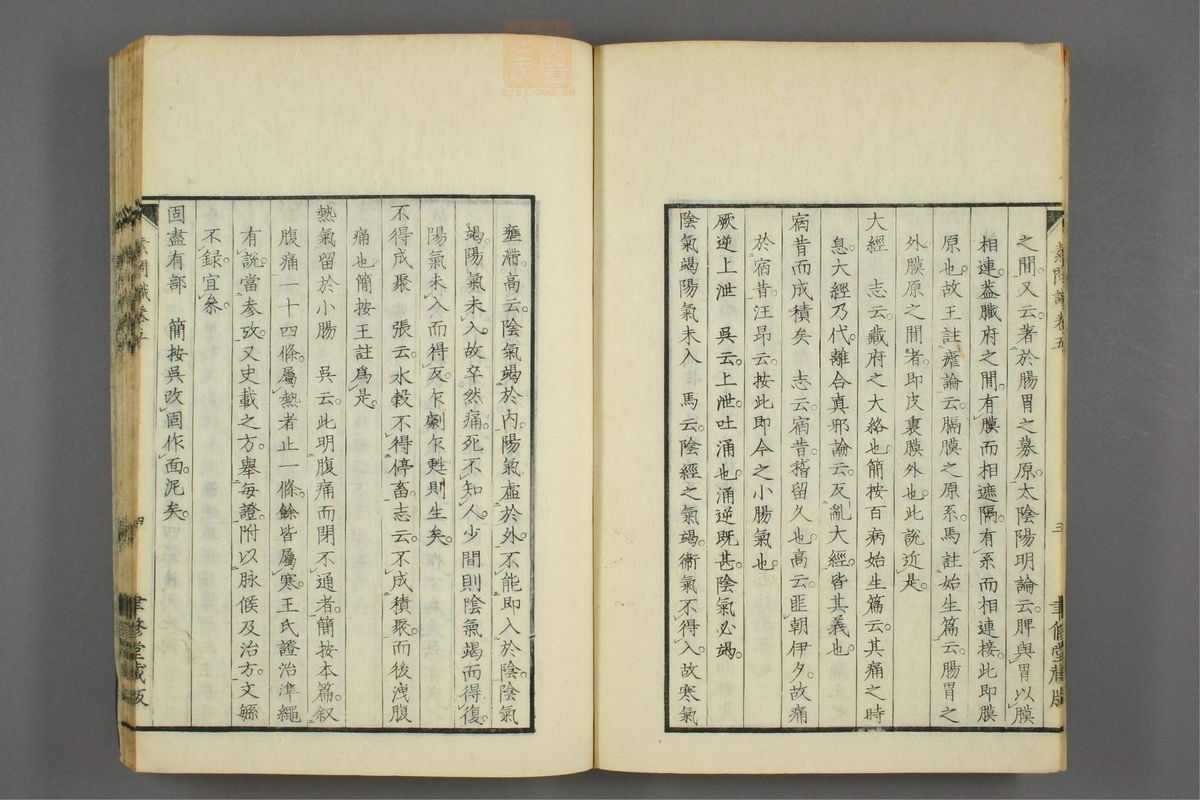 素問識卷五
三
聿修堂藏版
之間又云著於腸胃之募原太陰陽明論云脾與胃以膜
相連葢臟府之間有膜而相遮隔有系而相連接此即膜
原也故王註瘧論云膈膜之原系馬註始生篇云腸胃之
外膜原之間者即皮裏膜外也此說近是
大經　志云藏府之大絡也簡按百病始生篇云其痛之時
息大經乃代離合真邪論云反亂大經皆其義也
宿昔而成積矣　志云宿昔稽留久也高云匪朝伊夕故痛
於宿昔汪昂云按此即今之小腸氣也
厥逆上泄　吳云上泄吐涌也涌逆既甚陰氣必竭
陰氣竭陽氣未入　馬云陰經之氣竭衛氣不得入故寒氣
壅滯高云陰氣竭於內陽氣虛於外不能即入於陰陰氣
竭陽氣未入故卒然痛死不知人少間則陰氣竭而得復
陽氣未入而得反乍劇乍甦則生矣
不得成聚　張云水穀不得停畜志云不成積聚而後洩腹
痛也簡按王註爲是
熱氣留於小腸　吳云此明腹痛而閉不通者簡按本篇叙
腹痛一十四條屬熱者止一條餘皆屬寒王氏證治準繩
有說當参攷又史載之方舉每證附以脉候及治方文繁
不錄宜叅
固盡有部　簡按吳改固作面泥矣
素問識卷五
四
聿修堂藏版
zysj.com.cn